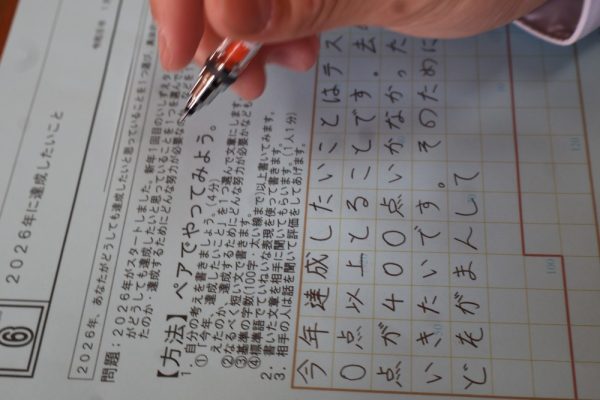 ⑥
2026年に達成したいこと
2026年、あなたがどうしても達成したいと思っていることを1つ選び、
問題：2026年がスタートしました。新年1回目のいしずえタ
がどうしても達成したいと思っていることを1つ選んで
たのか・達成するためにどんな努力が必要なのかなどを
【方法】ペアでやってみよう。
1．自分の考えを書きましょう。(4分)
①「今年、達成したいこと」を一つ選んで文章にします。
えたのか、達成するためにどんな努力が必要かなども
②なるべく短い文で書きます。
③基準の字数(100字・太い線まで)以上書いてみます。
④標準語でていねいな表現を使って書きます。
2．書いた文章を相手に聞いてもらいます。(1人1分)
3．相手の人は話を聞いて評価をしてあげます。
今年達成したいことはテス
０点以上とることです。去
点が４００点いかなかった
いきたいです。そのために
どをがまんして
100
120